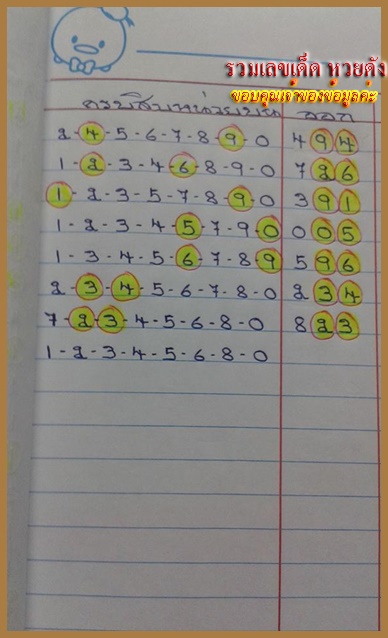 รวมเลขเด็ด หวยดัง
ขอบคุณเจ้าของข้อมูลค่ะ
ออก
2-4-5-6-7-8-9-0 494
1-2-3-4-6-8-9-0 726
1-2-3-5-7-8-9-0 391
1-2-3-4-5-7-9-0 005
1-3-4-5-6-7-8-9 596
2-3-4-5-6-7-8-0 234
7-2-3-4-5-6-8-0 823
1-2-3-4-5-6-8-0